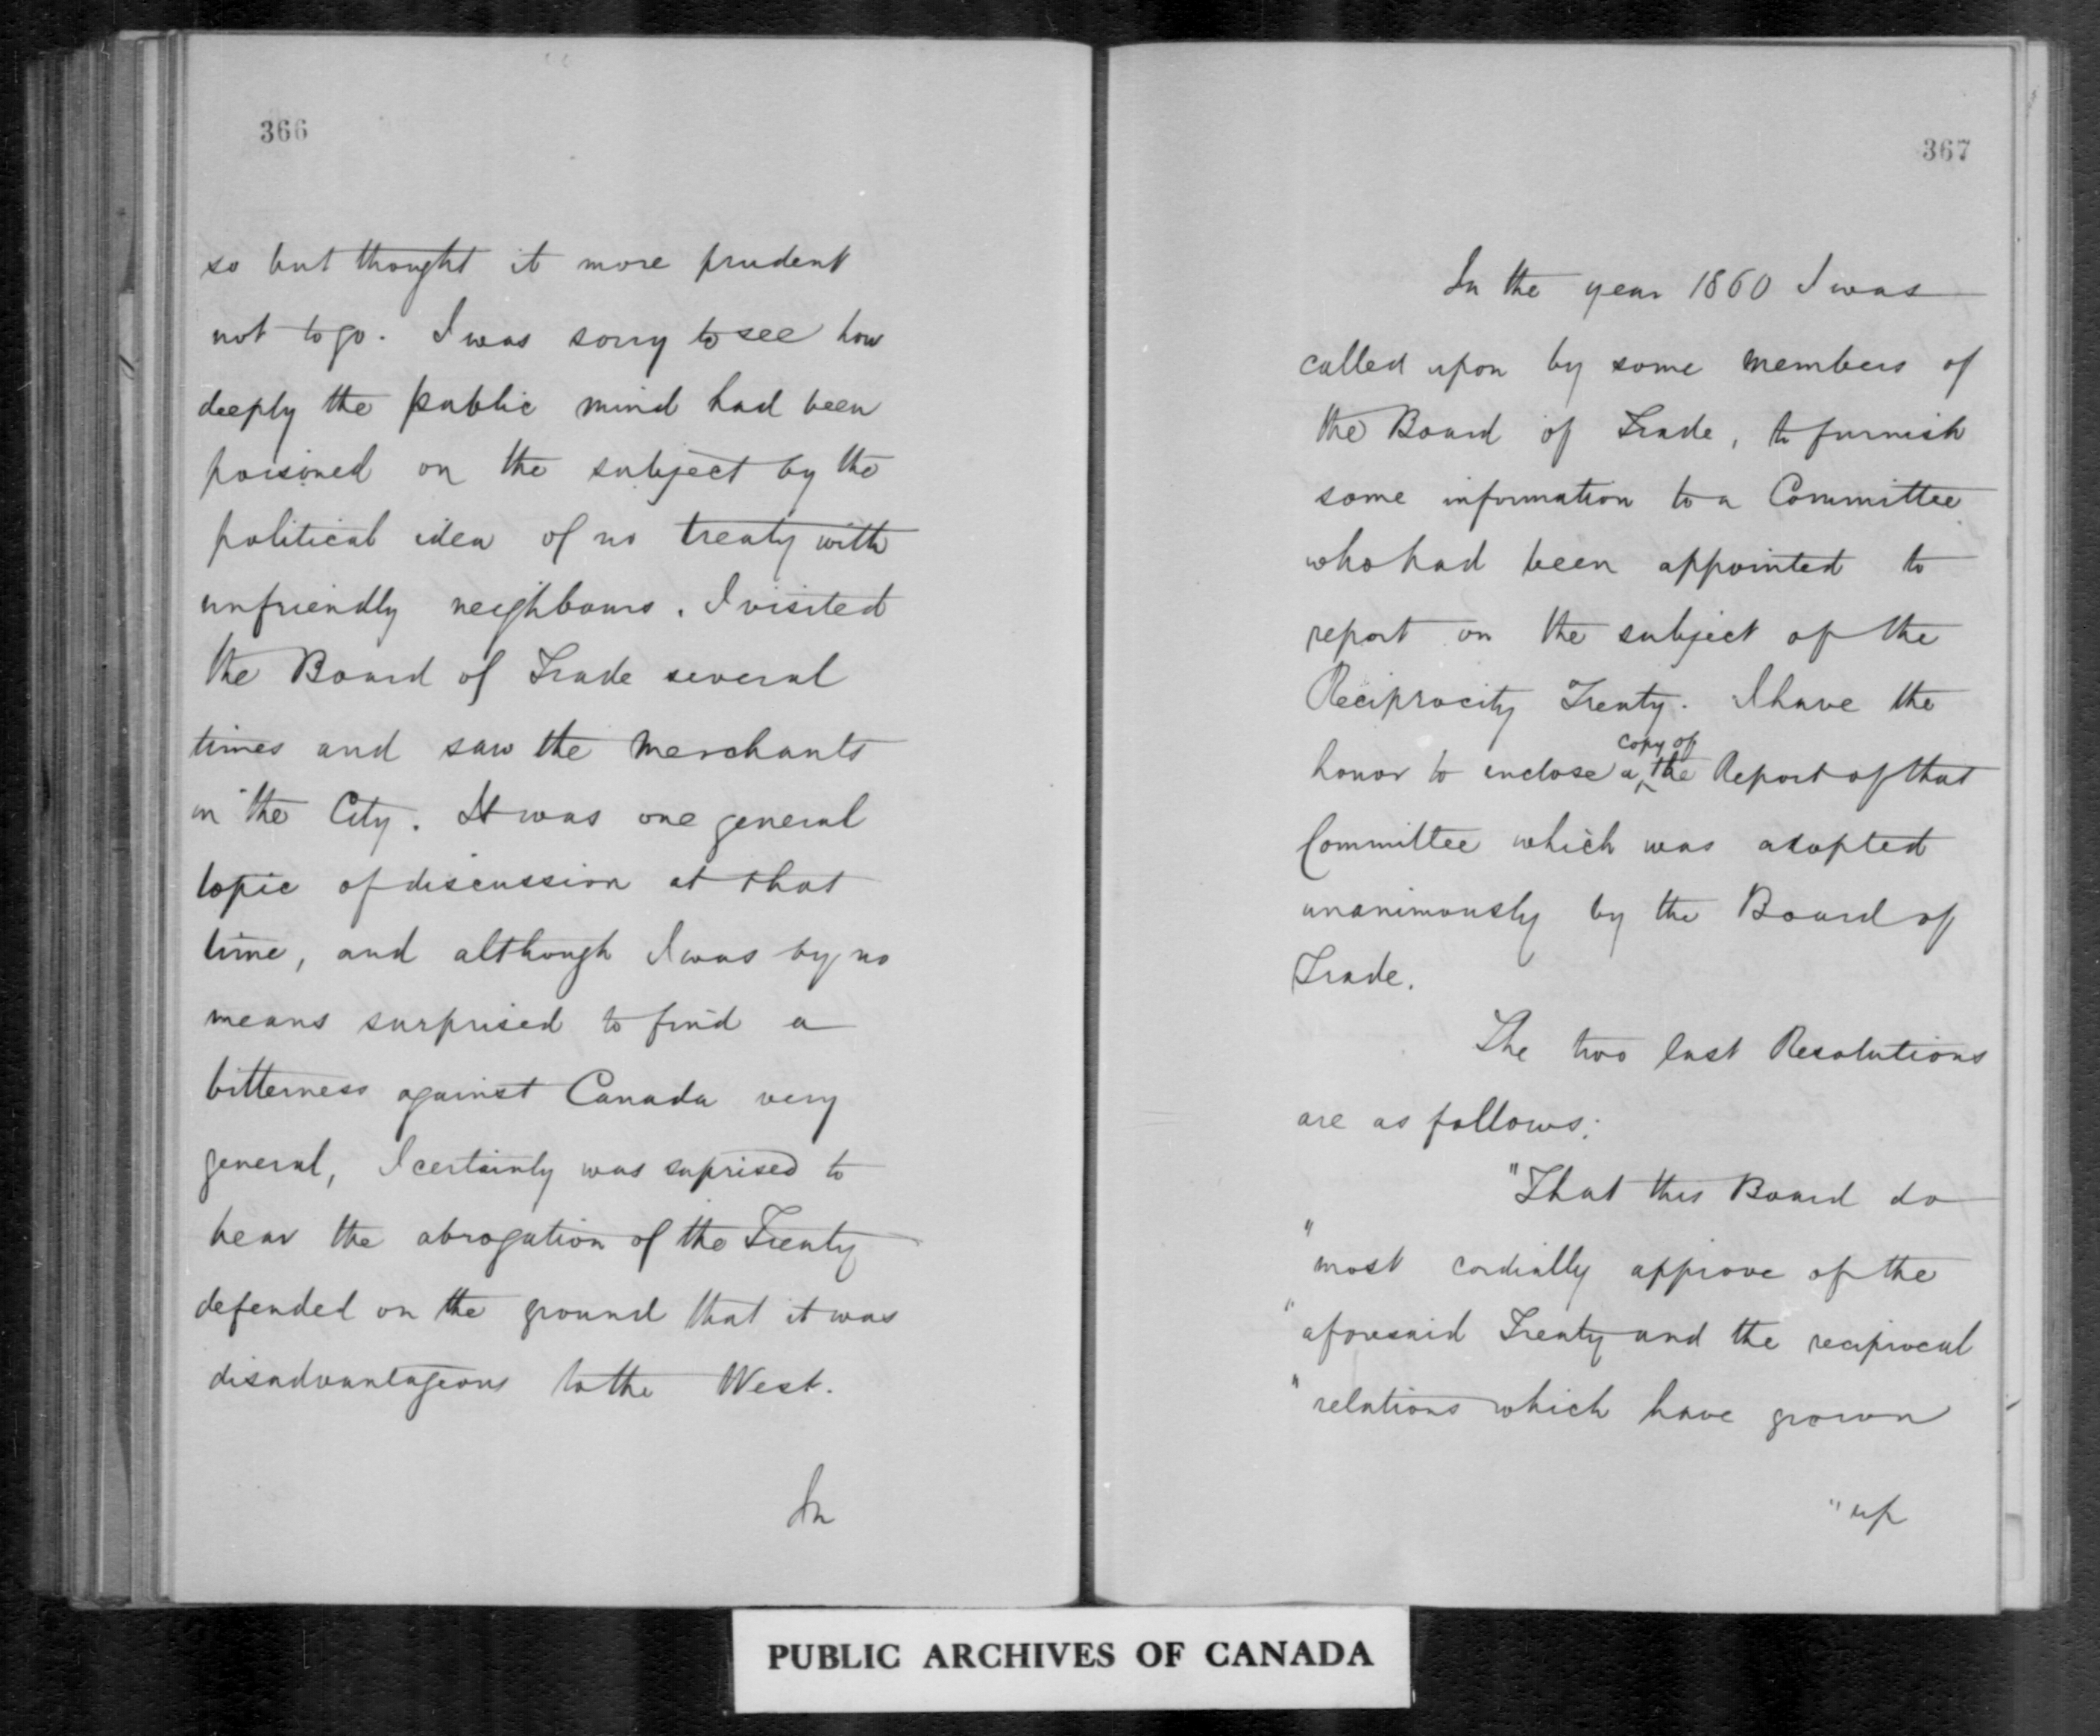 366
so but thought it more prudent
not to go. I was sorry to see how
deeply the public mind had been
poisoned on the subject by the
political idea of no treaty with
unfriendly neighbours. I visited
the Board of Trade several
times and saw the Merchants
in the City. It was one general
topic of discussion at that
time, and although I was by no
means surprised to find a
bitterness against Canada very
general, I certainly was suprised to
hear the abrogation of the Treaty
defended on the ground that it was
disadvantageous to the West.
In
367
In the year 1860 I was
called upon by some members of
the Board of Trade, to furnish
some information to a Committee
who had been appointed to
report on the subject of the
Reciprocity Treaty. I have the
copy of
honor to inclose a the Report of that
Committee which was adopted
unanimously by the Board of
Trade.
The two last Resolutions
are as follows:
"That this Board do
" most cordially approve of the
" aforesaid Treaty and the reciprocal
" relations which have grown
" up
PUBLIC ARCHIVES OF CANADA